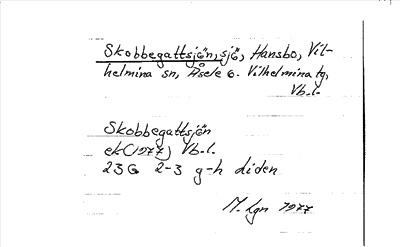 Skobbegattsjön, sjö, Hansbo, Vil-
helmina sn, Åsele o. Vilhelmina tg,
Vb.l.
Skobbegattsjön
ek (1977) Vb.l.
23G 2-3 g-h liden
M. Lgn 1977